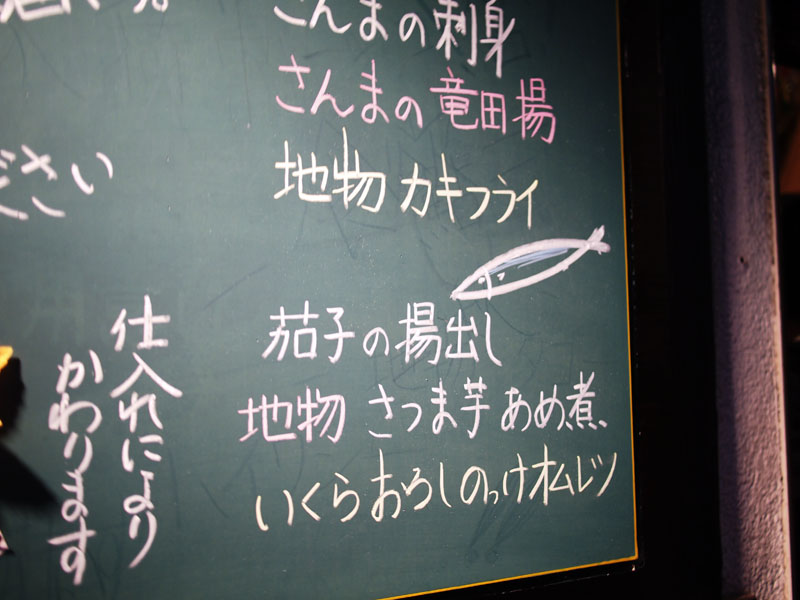 さんまの刺身
さんまの竜田揚
地物 カキフライ
茄子の揚出し
地物 さつま芋 あめ煮
いくらおろしのっけオムレツ
ださい
仕入れにより
かわります